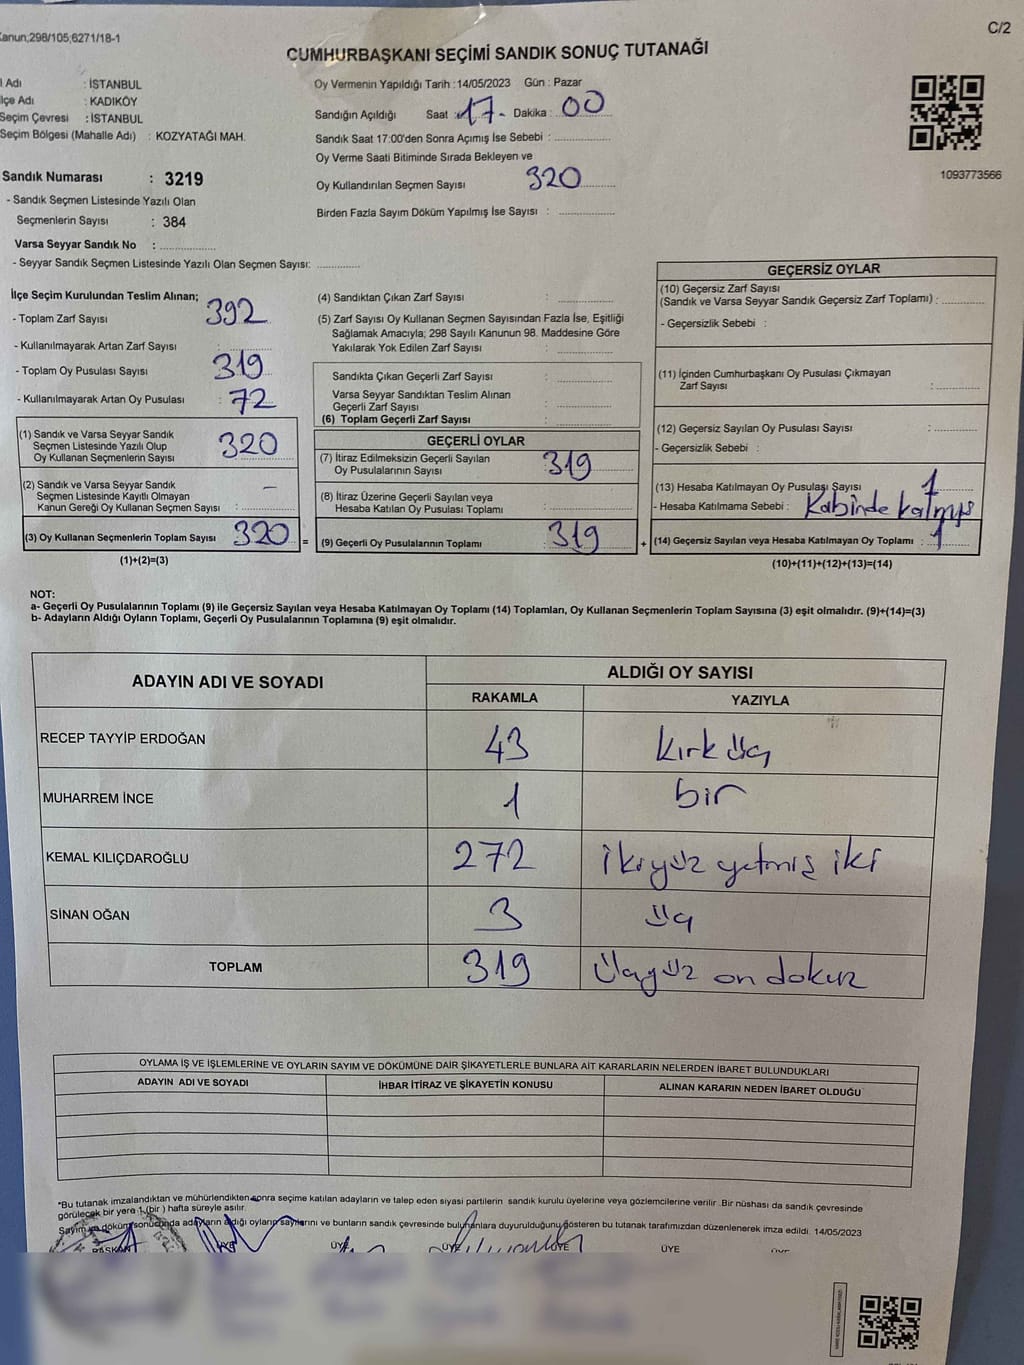 Kanun;298/105;6271/18-1
C/2
CUMHURBAŞKANI SEÇİMİ SANDIK SONUÇ TUTANAĞI
l Adı : İSTANBUL
İlçe Adı : KADIKÖY
Seçim Çevresi : İSTANBUL
Seçim Bölgesi (Mahalle Adı) : KOZYATAĞI MAH.
Oy Vermenin Yapıldığı Tarih : 14/05/2023 Gün : Pazar
Sandığın Açıldığı Saat : 17 - Dakika : 00
Sandık Saat 17:00'den Sonra Açımış İse Sebebi :
Oy Verme Saati Bitiminde Sırada Bekleyen ve
Oy Kullandırılan Seçmen Sayısı 320
Birden Fazla Sayım Döküm Yapılmış İse Sayısı :
1093773566
Sandık Numarası : 3219
- Sandık Seçmen Listesinde Yazılı Olan
Seçmenlerin Sayısı : 384
Varsa Seyyar Sandık No :
- Seyyar Sandık Seçmen Listesinde Yazılı Olan Seçmen Sayısı:
İlçe Seçim Kurulundan Teslim Alınan;
- Toplam Zarf Sayısı 392
- Kullanılmayarak Artan Zarf Sayısı :
- Toplam Oy Pusulası Sayısı 319
- Kullanılmayarak Artan Oy Pusulası : 72
(1) Sandık ve Varsa Seyyar Sandık
Seçmen Listesinde Yazılı Olup
Oy Kullanan Seçmenlerin Sayısı 320
(2) Sandık ve Varsa Seyyar Sandık
Seçmen Listesinde Kayıtlı Olmayan
Kanun Gereği Oy Kullanan Seçmen Sayısı : -
(3) Oy Kullanan Seçmenlerin Toplam Sayısı 320 =
(1)+(2)=(3)
(4) Sandıktan Çıkan Zarf Sayısı :
(5) Zarf Sayısı Oy Kullanan Seçmen Sayısından Fazla İse, Eşitliği
Sağlamak Amacıyla; 298 Sayılı Kanunun 98. Maddesine Göre
Yakılarak Yok Edilen Zarf Sayısı :
Sandıkta Çıkan Geçerli Zarf Sayısı :
Varsa Seyyar Sandıktan Teslim Alınan
Geçerli Zarf Sayısı :
(6) Toplam Geçerli Zarf Sayısı :
GEÇERLİ OYLAR
(7) İtiraz Edilmeksizin Geçerli Sayılan
Oy Pusulalarının Sayısı 319
(8) İtiraz Üzerine Geçerli Sayılan veya
Hesaba Katılan Oy Pusulaları Toplamı :
(9) Geçerli Oy Pusulalarının Toplamı : 319 +
GEÇERSİZ OYLAR
(10) Geçersiz Zarf Sayısı
(Sandık ve Varsa Seyyar Sandık Geçersiz Zarf Toplamı) :
- Geçersizlik Sebebi :
(11) İçinden Cumhurbaşkanı Oy Pusulası Çıkmayan
Zarf Sayısı :
(12) Geçersiz Sayılan Oy Pusulası Sayısı :
- Geçersizlik Sebebi :
(13) Hesaba Katılmayan Oy Pusulaşı Sayısı 1
- Hesaba Katılmama Sebebi : Kabinde kalmış
(14) Geçersiz Sayılan veya Hesaba Katılmayan Oy Toplamı : 1
(10)+(11)+(12)+(13)=(14)
NOT:
a- Geçerli Oy Pusulalarının Toplamı (9) ile Geçersiz Sayılan veya Hesaba Katılmayan Oy Toplamı (14) Toplamları, Oy Kullanan Seçmenlerin Toplam Sayısına (3) eşit olmalıdır. (9)+(14)=(3)
b- Adayların Aldığı Oyların Toplamı, Geçerli Oy Pusulalarının Toplamına (9) eşit olmalıdır.
ADAYIN ADI VE SOYADI
ALDIĞI OY SAYISI
RAKAMLA YAZIYLA
RECEP TAYYİP ERDOĞAN 43 kırk üç
MUHARREM İNCE 1 bir
KEMAL KILIÇDAROĞLU 272 ikiyüz yetmiş iki
SİNAN OĞAN 3 üç
TOPLAM 319 üçyüz on dokuz
OYLAMA İŞ VE İŞLEMLERİNE VE OYLARIN SAYIM VE DÖKÜMÜNE DAİR ŞİKAYETLERLE BUNLARA AİT KARARLARIN NELERDEN İBARET BULUNDUKLARI
ADAYIN ADI VE SOYADI İHBAR İTİRAZ VE ŞİKAYETİN KONUSU ALINAN KARARIN NEDEN İBARET OLDUĞU
"Bu tutanak imzalandıktan ve mühürlendikten sonra seçime katılan adayların ve talep eden siyasi partilerin sandık kurulu üyelerine veya gözlemcilerine verilir .Bir nüshası da sandık çevresinde
görülecek bir yere 1 (bir ) hafta süreyle asılır.
Sayım ve döküm sonucunda adayların aldığı oyların sayılarını ve bunların sandık çevresinde bulunanlara duyurulduğunu gösteren bu tutanak tarafımızdan düzenlenerek imza edildi. 14/05/2023
BAŞKAN ÜYE ÜYE ÜYE ÜYE ÜYE ÜYE